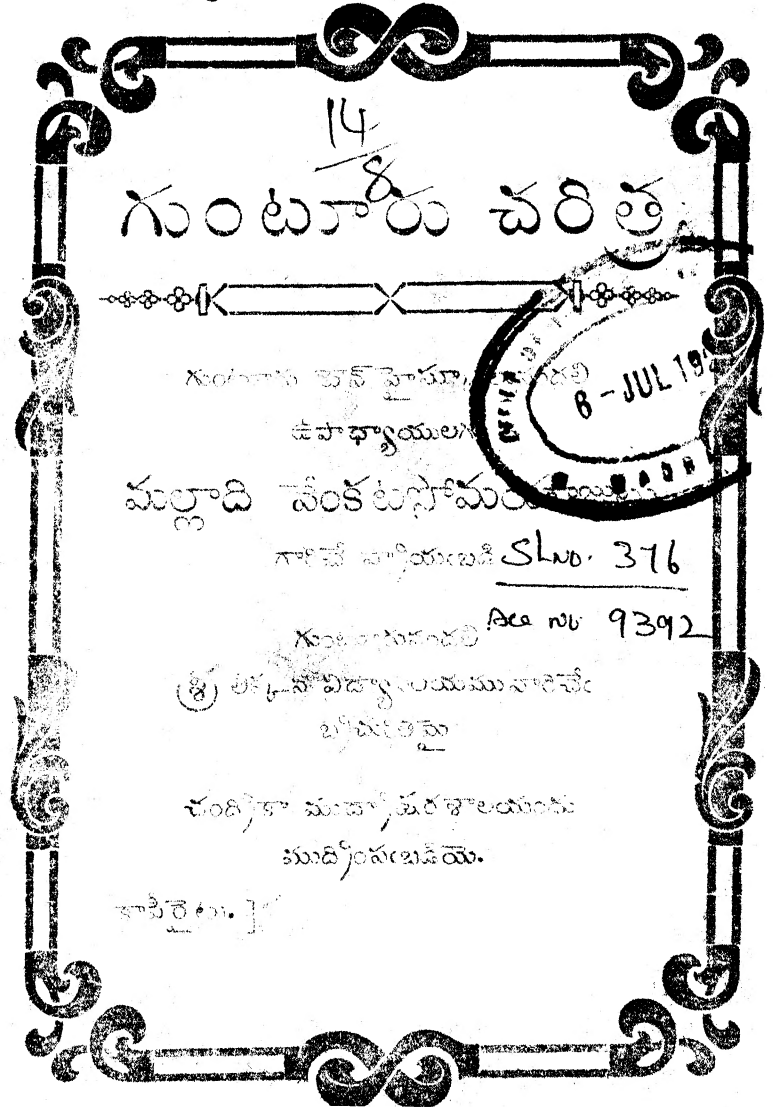 14
8
గుంటూరు చరిత్ర
గుంటూరు టౌన్ హైస్కూలునందలి
6 - JUL 19
ఉపాధ్యాయులగు
మల్లాది వేంకటసోమయాజులు
MADR
గారిచే వ్రాయఁబడి
Sl No. 376
Acc No 9392
గుంటూరునందలి
శ్రీ విద్యాలయమువారిచేఁ
బ్రచురితమై
చంద్రికా ముద్రాక్షరశాలయందు
ముద్రింపఁబడియె.
కాపిరైటు. ]